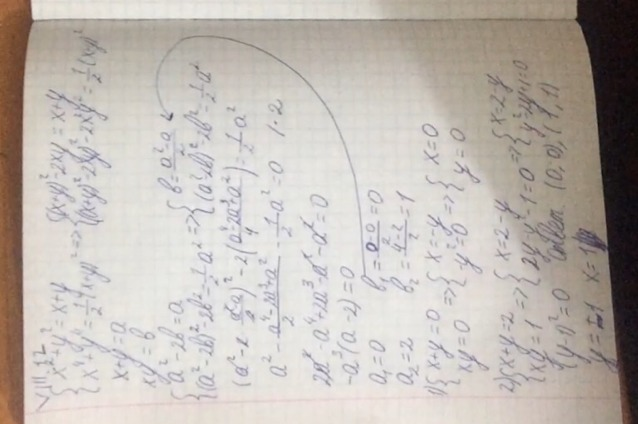 VIII.12
{x²+y²=x+y {(x+y)²-2xy=x+y
{x⁴+y⁴=½(x+y)² => {((x+y)²-2xy)²-2x²y²=½(x+y)²
x+y=a
xy=b
{a²-2b=a {b=(a²-a)/2
{(a²-2b)²-2b²=½a² => {(a²-2b)²-2b²=½a²
(a²-2·(a²-a)/2)²-2((a⁴-2a³+a²)/4)=½a²
a²-(a⁴-2a³+a²)/2-½a²=0 |·2
2a²-a⁴+2a³-a²-a²=0
-a³(a-2)=0
a₁=0 b₁=(0-0)/2=0
a₂=2 b₂=(4-2)/2=1
1) {x+y=0 => {x=-y => {x=0
{xy=0 {-y²=0 {y=0
2) {x+y=2 => {x=2-y => {x=2-y
{xy=1 {2y-y²-1=0 {y²-2y+1=0
(y-1)²=0 (0,0), (1,1)
y=1 x=1